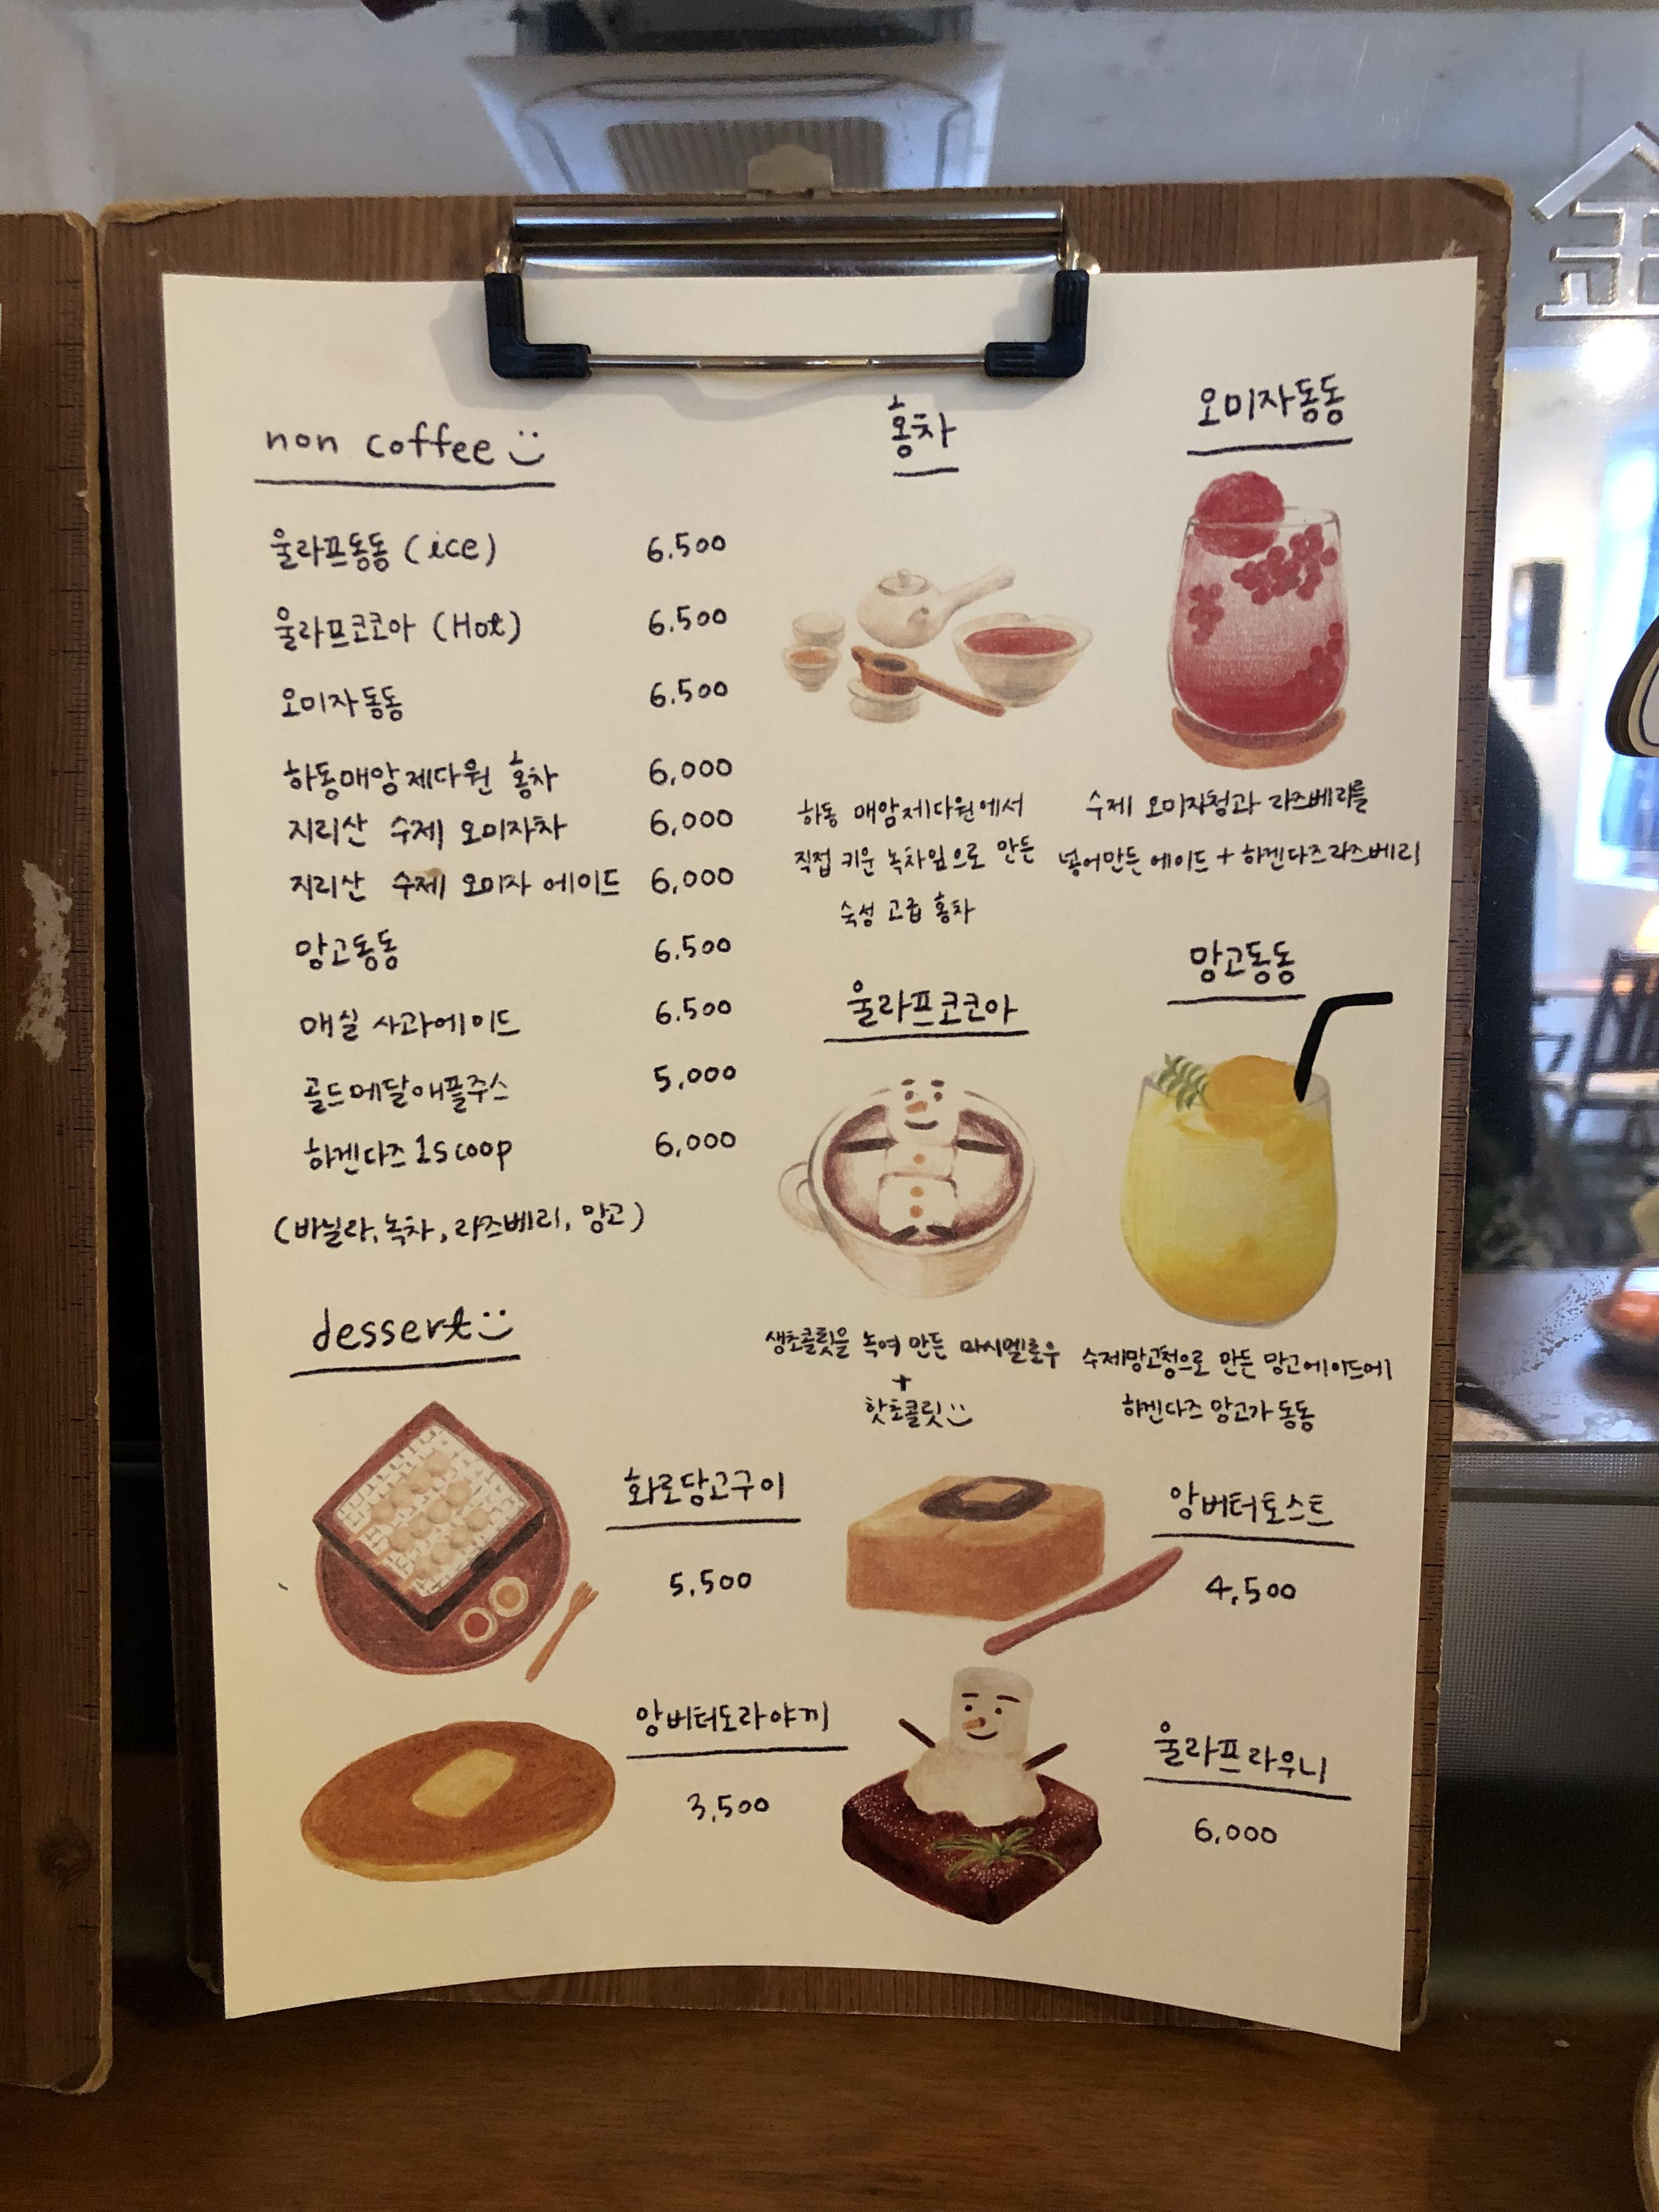 non coffee
울라프동동 (ice) 6.500
울라프코코아 (Hot) 6.500
오미자동동 6.500
하동매암제다원 홍차 6,000
지리산 수제 오미자차 6,000
지리산 수제 오미자 에이드 6,000
망고동동 6.500
매실 사과에이드 6.500
골드메달애플주스 5,000
하겐다즈 1scoop 6,000
(바닐라, 녹차, 라즈베리, 망고)
홍차
하동 매암제다원에서
직접 키운 녹차잎으로 만든
숙성 고급 홍차
오미자동동
수제 오미자청과 라즈베리를
넣어만든 에이드 + 하겐다즈라즈베리
울라프코코아
생초콜릿을 녹여 만든 마시멜로우
+
핫초콜릿
망고동동
수제망고청으로 만든 망고에이드에
하겐다즈 망고가 동동
dessert
화로당고구이
5,500
앙버터토스트
4,500
앙버터도라야끼
3,500
울라프라우니
6,000